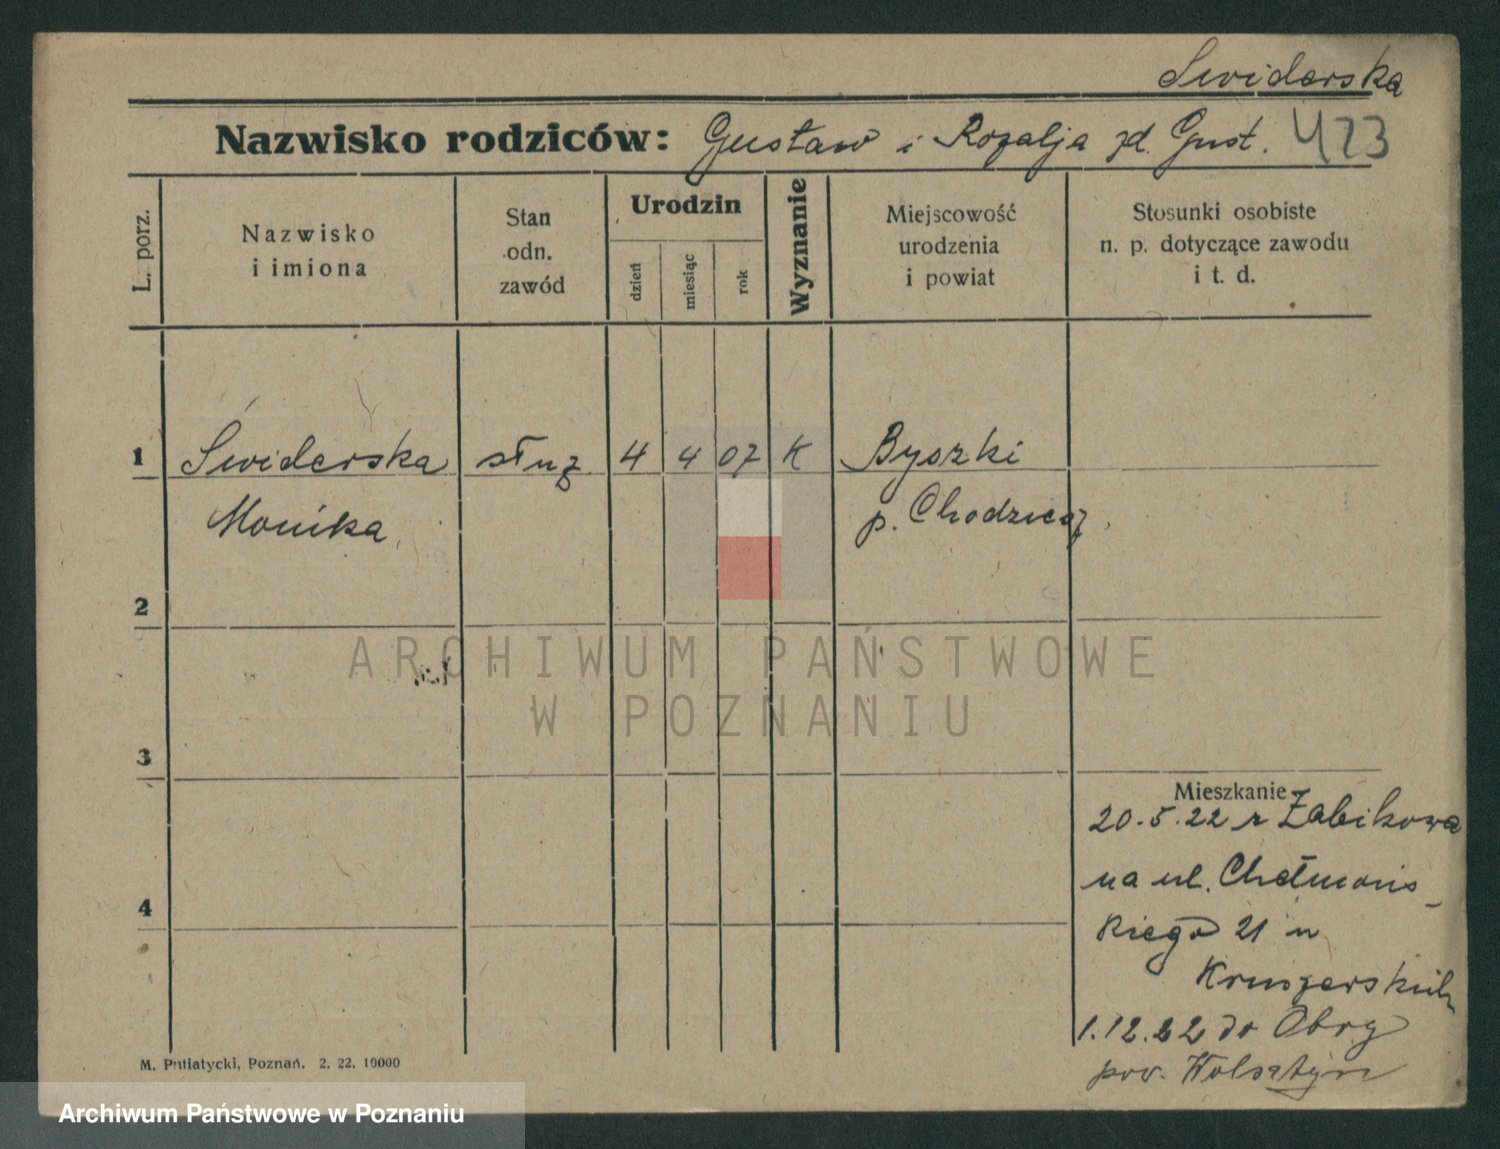 Swiderska
Nazwisko rodziców: Gustaw i Rozalja zd. Gust. 423
L. porz.
Nazwisko
i imiona
Stan
odn.
zawód
Urodzin
dzień
miesiąc
rok
Wyznanie
Miejscowość
urodzenia
i powiat
Stosunki osobiste
n. p. dotyczące zawodu
i t. d.
1 Świderska służ. 4 4 07 K Byszki
Monika p. Chodzież
2
ARCHIWUM PAŃSTWOWE
W POZNANIU
3
Mieszkanie
20.5.22 z Żabikowa
na ul. Chełmońs-
4
kiego 21 u
Kruszerskich
1.12.22 do Obry
pow. Wolsztyn
M. Putiatycki, Poznań. 2. 22. 10000
Archiwum Państwowe w Poznaniu